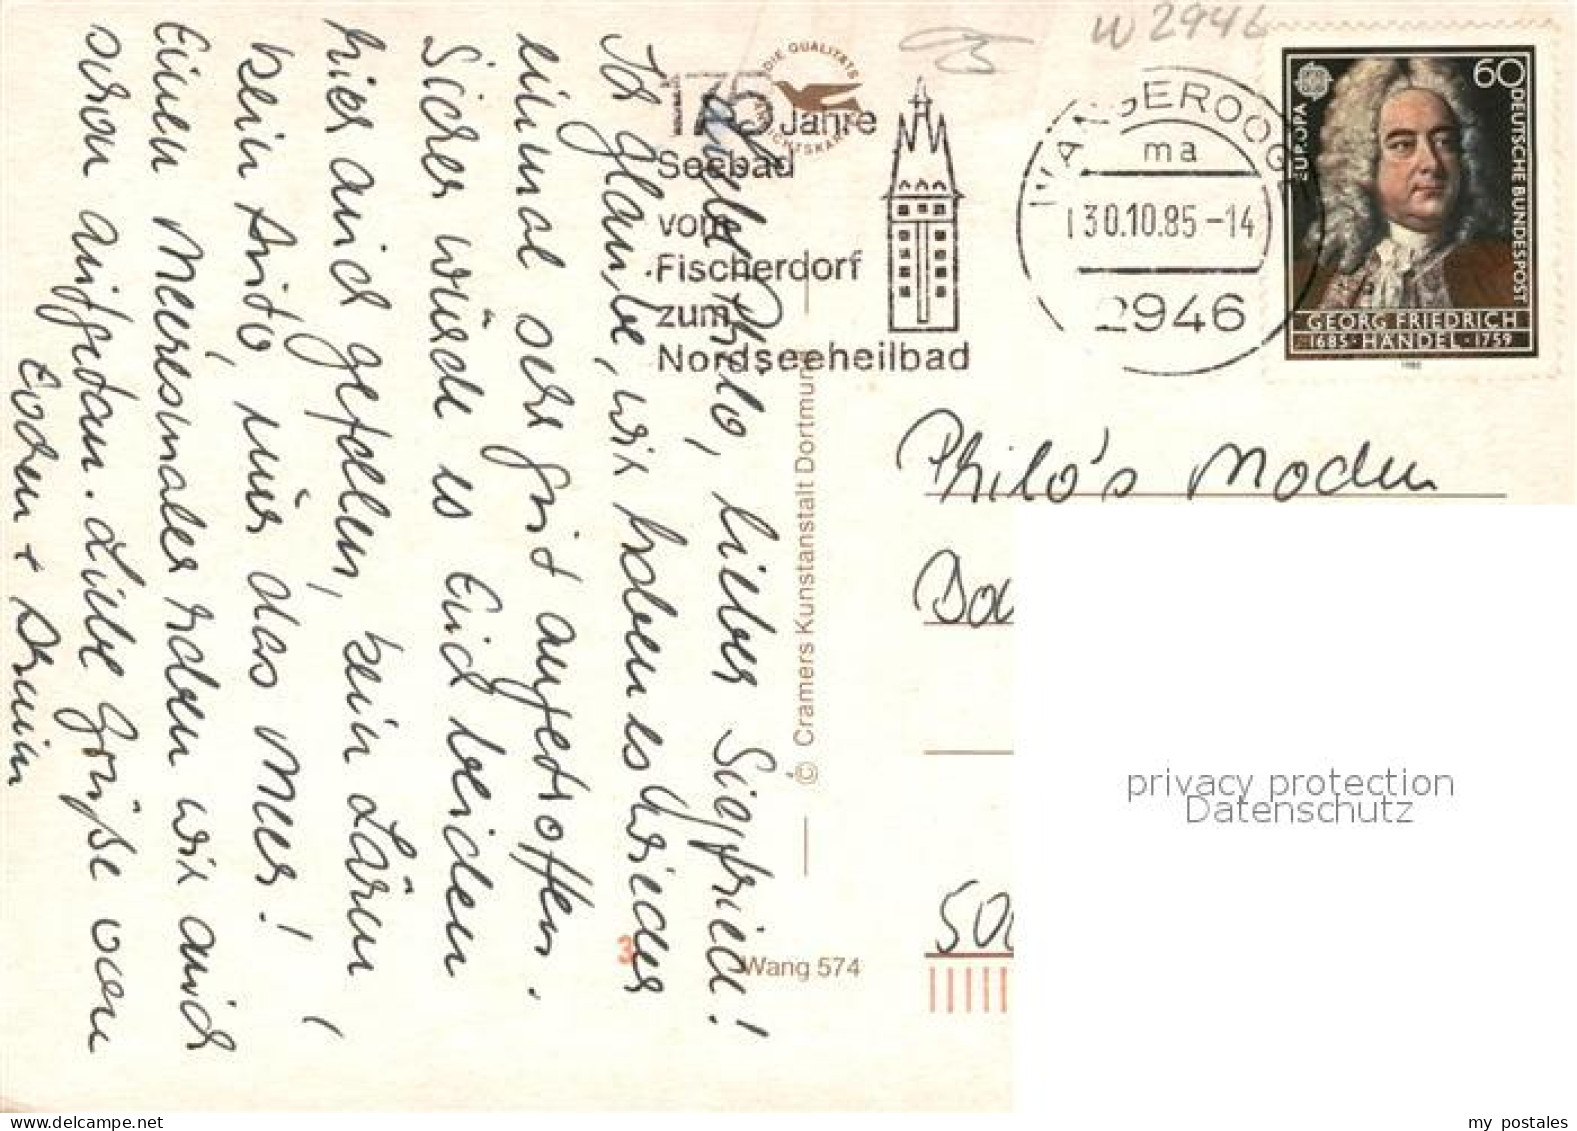 W 2946
DIE QUALITÄTS
175 Jahre
Seebad
vom
Fischerdorf
zum
Nordseeheilbad
WANGEROOGE
ma
30.10.85-14
2946
EUROPA
60
DEUTSCHE BUNDESPOST
GEORG FRIEDRICH
1685 · HÄNDEL · 1759
Philo, lieber Siegfried!
Ich glaube, wir haben es wieder
einmal sehr gut angetroffen.
Sicher würde es Euch beiden
hier auch gefallen, kein Lärm,
kein Auto, nur das Meer!
Einen Meeresmaler haben wir auch
schon aufgetan. Liebe Grüße von
© Cramers Kunstanstalt Dortmund
Wang 574
3
Philo's Moden
500
privacy protection
Datenschutz
my postales